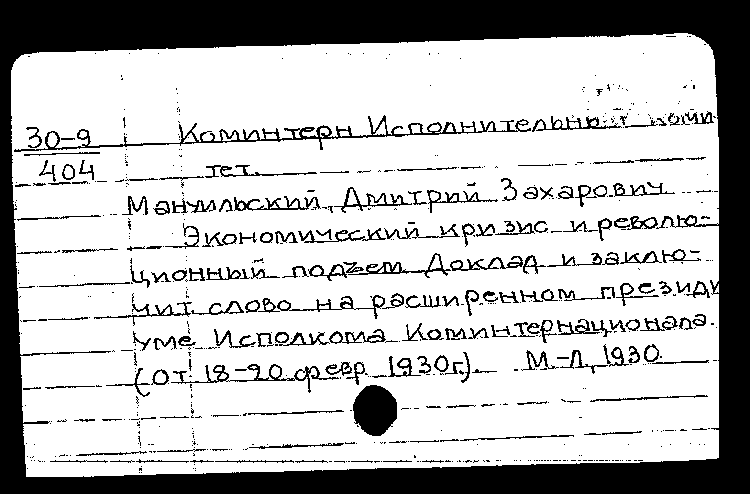 30-9
404
Коминтерн Исполнительный коми-
тет.
Мануильский, Дмитрий Захарович
Экономический кризис и револю-
ционный подъем. Доклад и заклю-
чит. слово на расширенном президи
уме Исполкома Коминтернационала.
(От 18-20 февр. 1930г.). М.-Л., 1930.